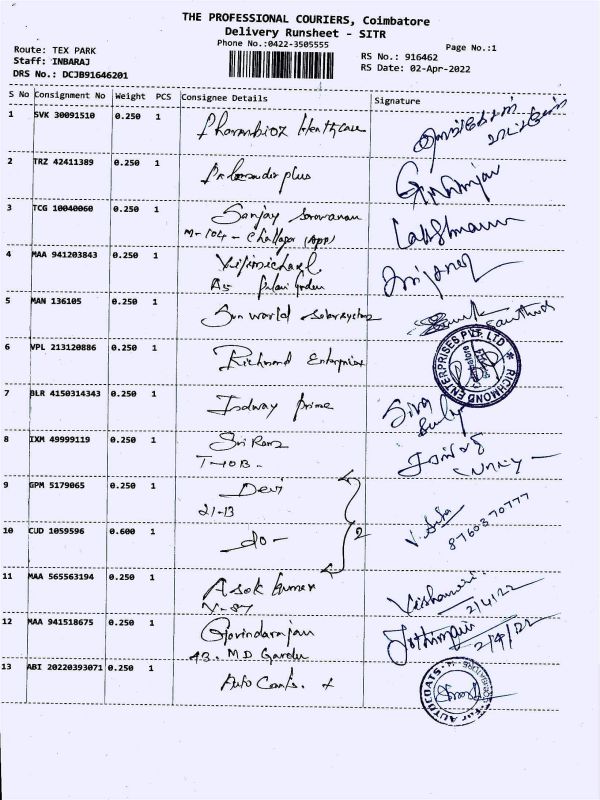 THE PROFESSIONAL COURIERS, Coimbatore
Delivery Runsheet - SITR
Phone No.:0422-3505555
Page No.:1
Route: TEX PARK
Staff: INBARAJ
DRS No.: DCJB91646201
RS No.: 916462
RS Date: 02-Apr-2022
S No Consignment No Weight PCS Consignee Details Signature
1 SVK 30091510 0.250 1 Healthcare
2 TRZ 42411389 0.250 1 plus
3 TCG 10040060 0.250 1 Sanjay Saravanan Lakshmanan
M-104 - (App)
4 MAA 941203843 0.250 1
A5
5 MAN 136105 0.250 1 Sun world Solarsystems Santhosh
6 VPL 213120886 0.250 1 Richmond Enterprises RICHMOND ENTERPRISES PVT. LTD
7 BLR 4150314343 0.250 1 prime Siva
8 IXM 49999119 0.250 1 Sri Ram
T-10B.
9 GPM 5179065 0.250 1 Devi
21-13
10 CUD 1059596 0.600 1 -do- 2 8760370777
11 MAA 565563194 0.250 1 Asok kumar
V-87 2/4/22
12 MAA 941518675 0.250 1 Govindarajan
43. M.D Garden 2/4/22
13 ABI 20220393071 0.250 1 Auto Coats. For AUTOCOATS